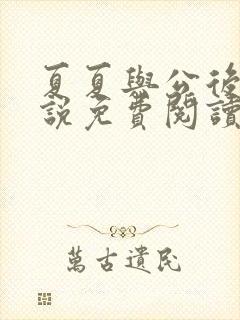 夏夏與公後
說免費閱讀
萬古遺民